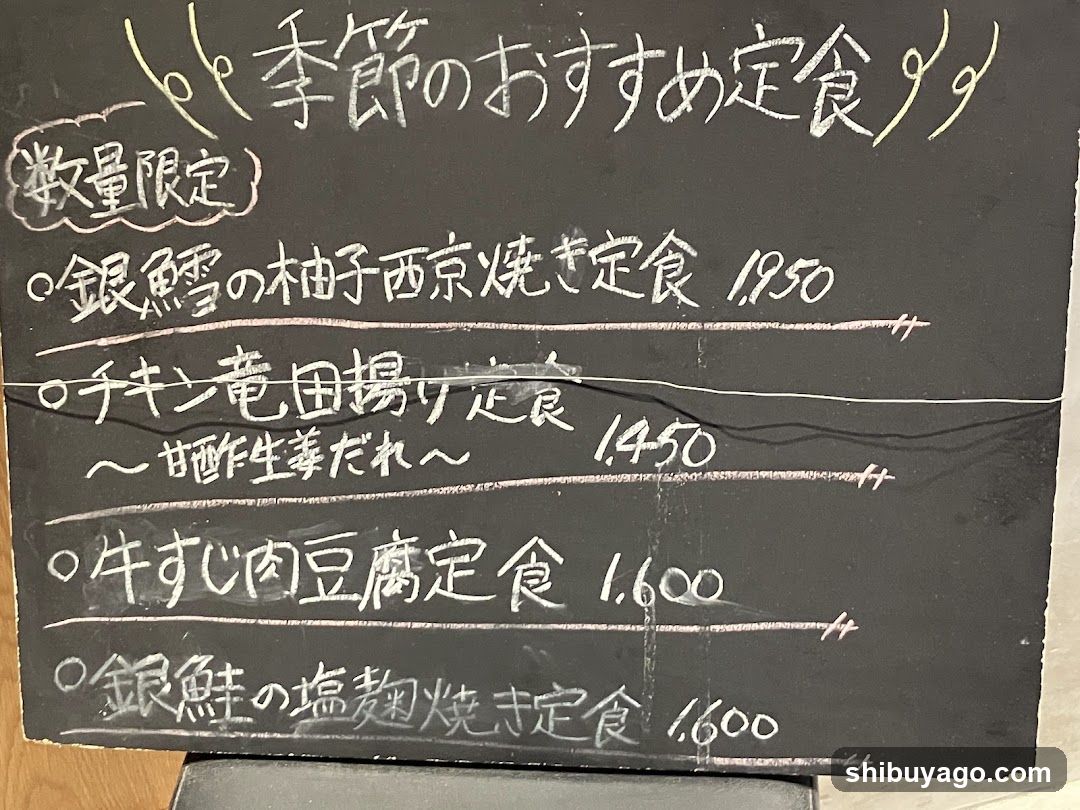 季節のおすすめ定食
数量限定
○銀鱈の柚子西京焼き定食 1,950
○チキン竜田揚げ定食
～甘酢生姜だれ～ 1,450
○牛すじ肉豆腐定食 1,600
○銀鮭の塩麹焼き定食 1,600
shibuyago.com